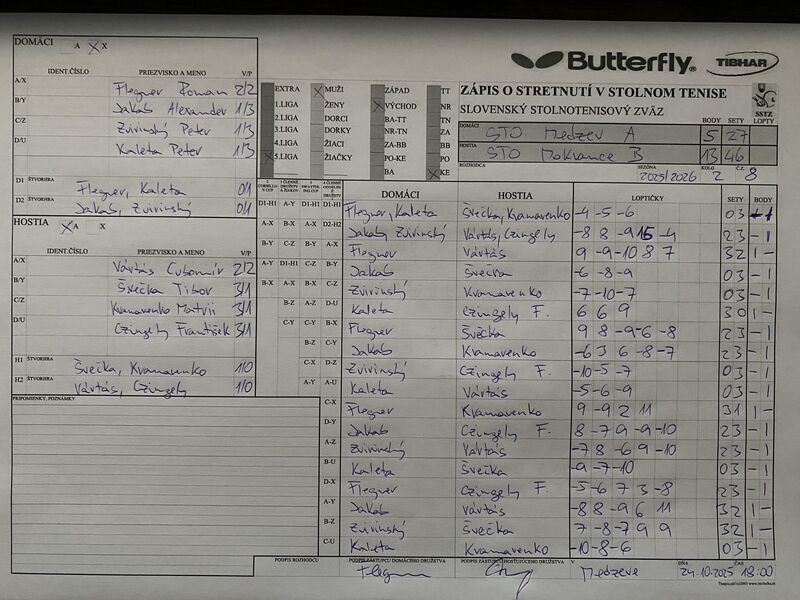 DOMÁCI A X X
IDENT.ČÍSLO PRIEZVISKO A MENO V/P
A/X Flegner Roman 2/2
B/Y Jakab Alexander 1/3
C/Z Zvirinský Peter 1/3
D/U Kaleta Peter 1/3
D1 ŠTVORHRA Flegner, Kaleta 0/1
D2 ŠTVORHRA Jakab, Zvirinský 0/1
HOSTIA X A X
IDENT.ČÍSLO PRIEZVISKO A MENO V/P
A/X Vártás Ľubomír 2/2
B/Y Švečka Tibor 3/1
C/Z Kravnavenko Matvii 3/1
D/U Czingely František 3/1
H1 ŠTVORHRA Švečka, Kramarenko 1/0
H2 ŠTVORHRA Vártás, Czingely 1/0
PRIPOMIENKY, POZNÁMKY
EXTRA X MUŽI ZÁPAD TT
1.LIGA ŽENY X VÝCHOD NR
2.LIGA DORCI BA-TT TN
3.LIGA DORKY NR-TN ZA
4.LIGA ŽIACI ZA-BB BB
X 5.LIGA ŽIAČKY PO-KE PO
BA X KE
Butterfly. TIBHAR
ZÁPIS O STRETNUTÍ V STOLNOM TENISE
SLOVENSKÝ STOLNOTENISOVÝ ZVÄZ
SSTZ
BODY SETY LOPTY
DOMÁCI STO Medzev A 5 27
HOSTIA STO Mokrance B 13 46
ROZHODCA SEZÓNA 2025/2026 KOLO 2 Č.Z. 8
DOMÁCI HOSTIA LOPTIČKY SETY BODY
D1-H1 A-Y D1-H1 D1-H1 Flegner, Kaleta Švečka, Kramarenko -4 -5 -6 03 -1
A-X B-X A-X D2-H2 Jakab, Zvirinský Vártás, Czingely -8 8 -9 15 -4 23 -1
B-Y C-Z B-Y A-X Flegner Vártás 9 -9 -10 8 7 32 1-
A-Y D1-H1 C-Z B-Y Jakab Švečka -6 -8 -9 03 -1
B-X A-X B-X C-Z Zvirinský Kramarenko -7 -10 -7 03 -1
B-Z A-Z D-U Kaleta Czingely F. 6 6 9 30 1-
C-Y C-Y B-X Flegner Švečka 9 8 -9 -6 -8 23 -1
B-Z C-Y Jakab Kramarenko -6 3 6 -8 -7 23 -1
C-X D-Z Zvirinský Czingely F. -10 -5 -7 03 -1
A-Y A-U Kaleta Vártás -5 -6 -9 03 -1
C-X Flegner Kramarenko 9 -9 2 11 31 1-
D-Y Jakab Czingely F. 8 -7 9 -9 -10 23 -1
A-Z Zvirinský Vártás -7 8 -6 9 -10 23 -1
B-U Kaleta Švečka -9 -7 -10 03 -1
D-X Flegner Czingely F. -5 -6 7 3 -8 23 -1
A-Y Jakab Vártás -8 8 -9 6 11 32 1-
B-Z Zvirinský Švečka 7 -8 -7 9 9 32 1-
C-U Kaleta Kramarenko -10 -8 -6 03 -1
PODPIS ROZHODCU PODPIS ZÁSTUPCU DOMÁCEHO DRUŽSTVA PODPIS ZÁSTUPCU HOSŤUJÚCEHO DRUŽSTVA V Medzeve DŇA 24.10.2025 ČAS 18:00